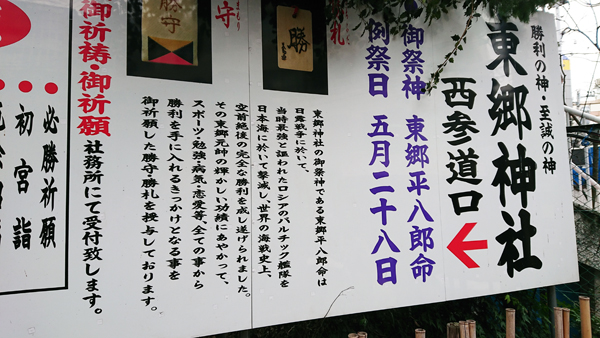 勝利の神・至誠の神
東郷神社
西参道口
御祭神 東郷平八郎命
例祭日 五月二十八日
東郷神社の御祭神である東郷平八郎命は
日露戦争に於いて、
当時最強と謳われたロシアのバルチック艦隊を
日本海に於いて撃滅し、世界の海戦史上、
空前絶後の完全な勝利を成し遂げられました。
その東郷元帥の輝かしい功績にあやかって、
スポーツ・勉強・病気・恋愛等、全ての事から
勝利を手に入れるきっかけとなる事を
御祈願した勝守・勝札を授与しております。
札
勝
守
勝守
御祈祷・御祈願 社務所にて受付致します。
必勝祈願
初宮詣